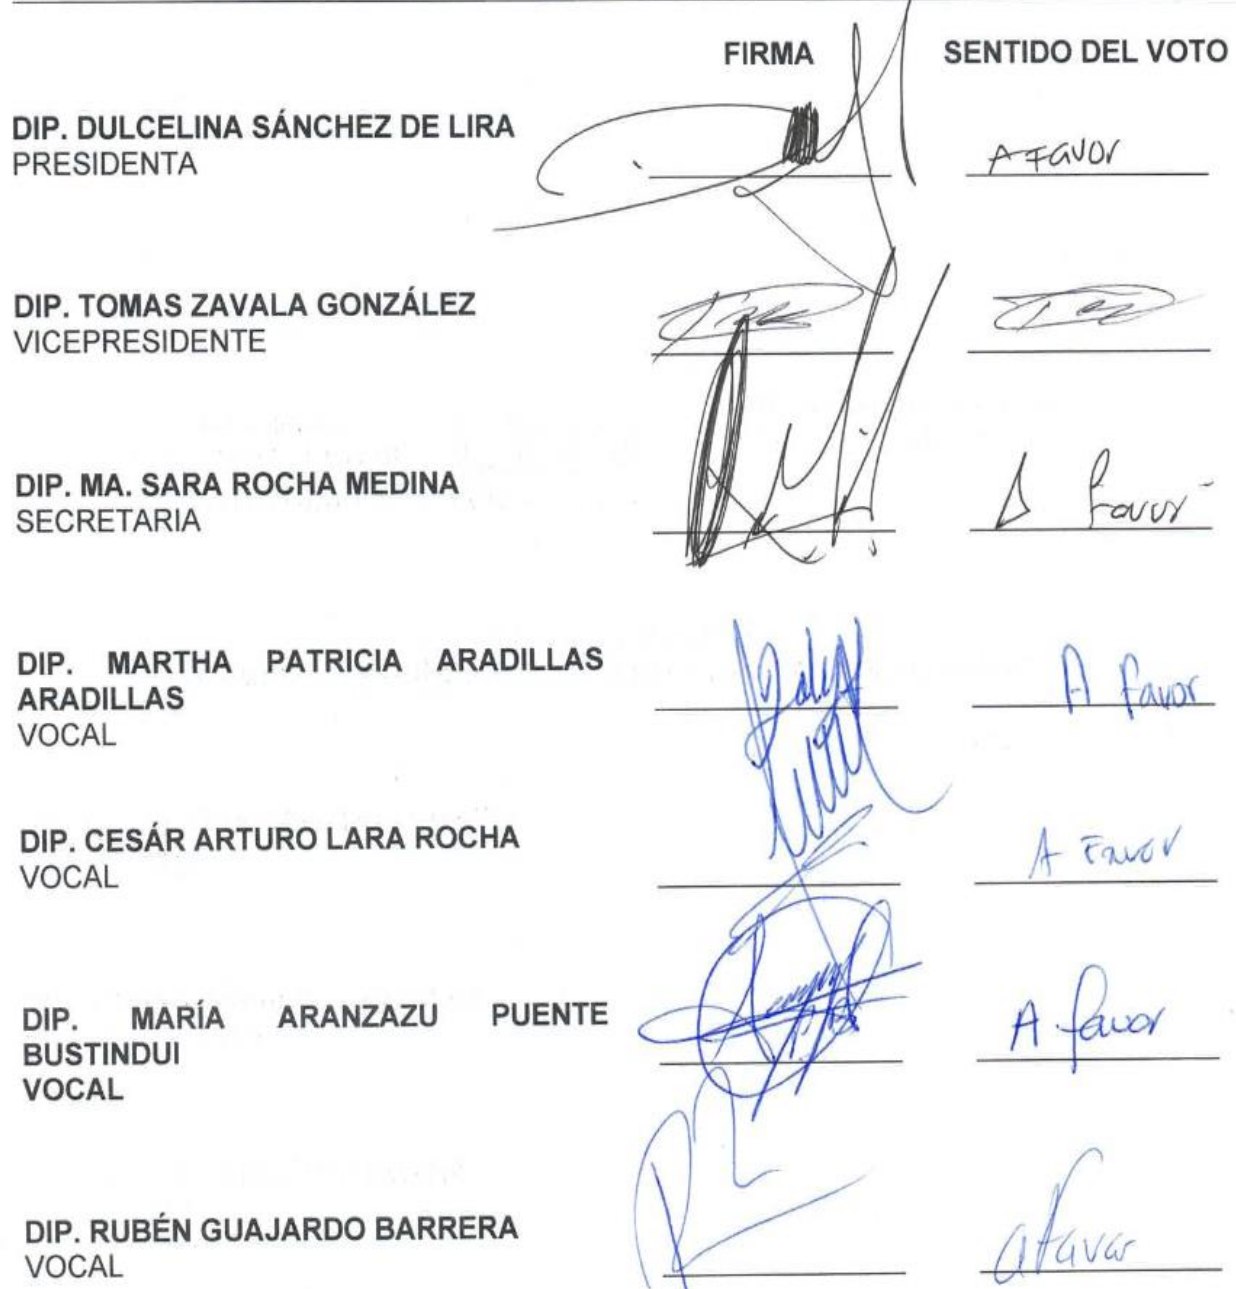 FIRMA SENTIDO DEL VOTO
DIP. DULCELINA SÁNCHEZ DE LIRA
PRESIDENTA
A Favor
DIP. TOMAS ZAVALA GONZÁLEZ
VICEPRESIDENTE
DIP. MA. SARA ROCHA MEDINA
SECRETARIA
A Favor
DIP. MARTHA PATRICIA ARADILLAS
ARADILLAS
VOCAL
A Favor
DIP. CESÁR ARTURO LARA ROCHA
VOCAL
A Favor
DIP. MARÍA ARANZAZU PUENTE
BUSTINDUI
VOCAL
A favor
DIP. RUBÉN GUAJARDO BARRERA
VOCAL
a Favor